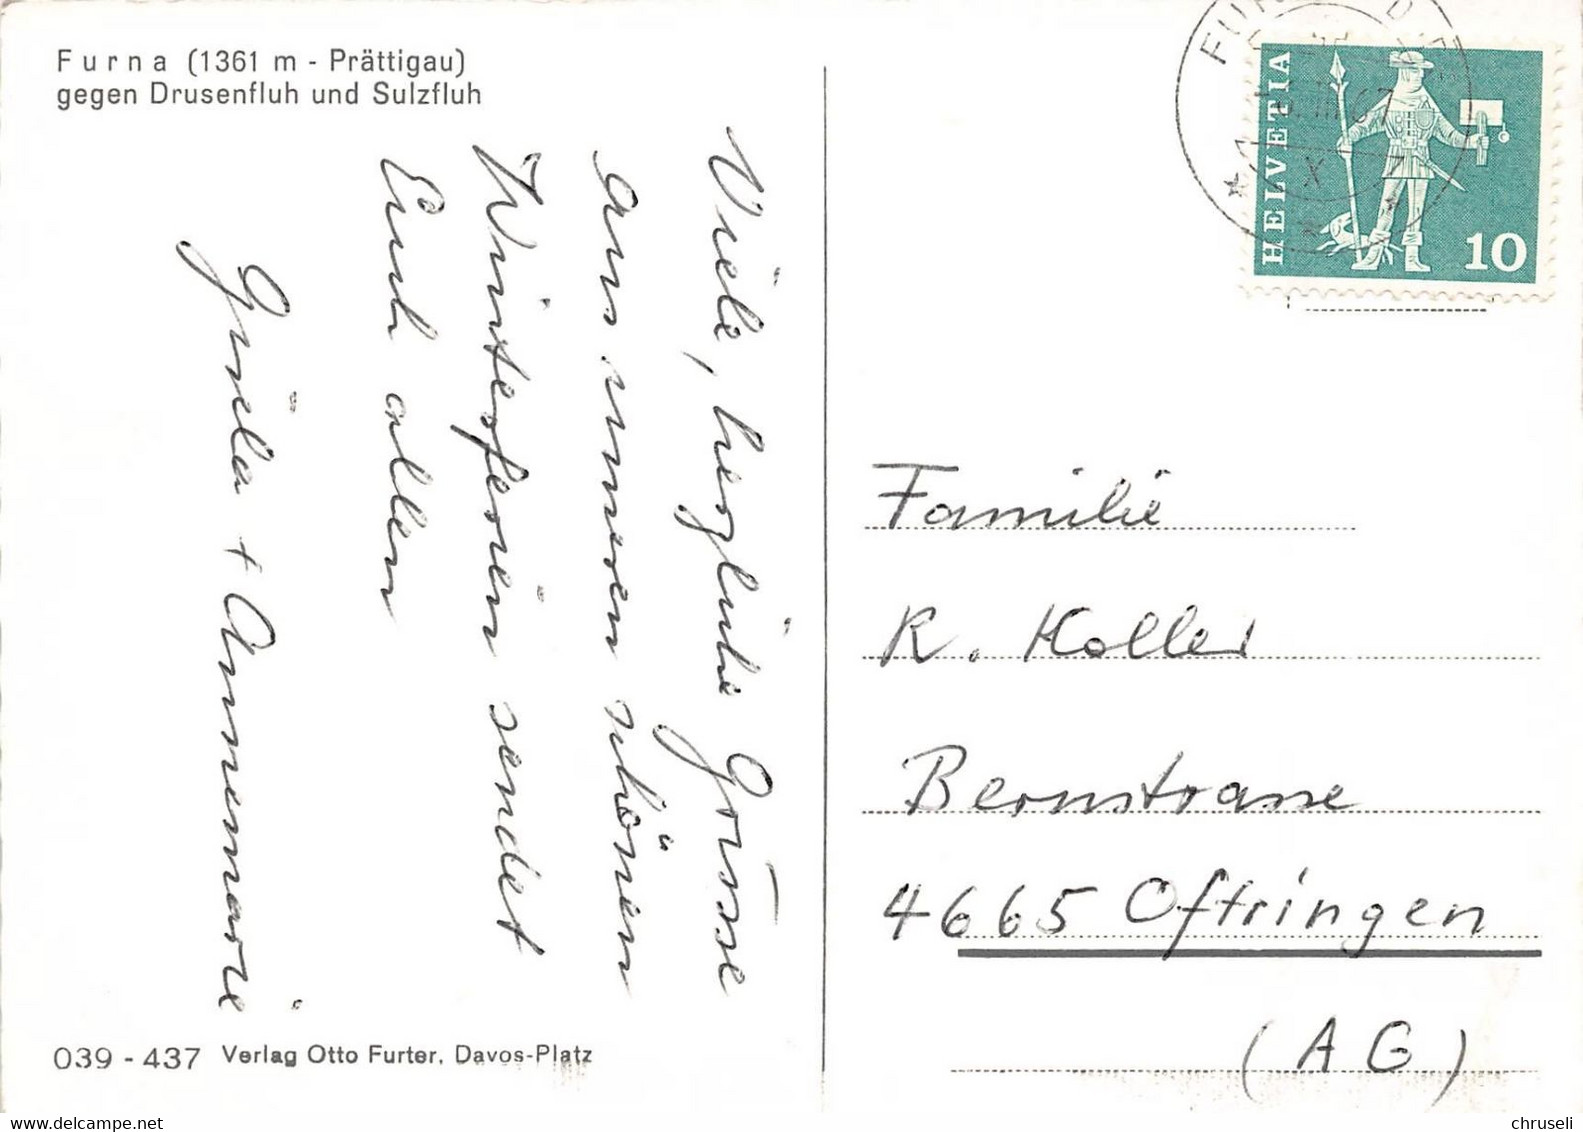 Furna (1361 m - Prättigau)
gegen Drusenfluh und Sulzfluh
Viele, herzliche Grüsse
aus unseren schönen
Winterferien sendet
Euch allen
Gisela + Annemarie
039 - 437 Verlag Otto Furter, Davos-Platz
HELVETIA
10
III.67
X
Familie
R. Koller
Bernstrasse
4665 Oftringen
(AG)
www.delcampe.net
chruseli